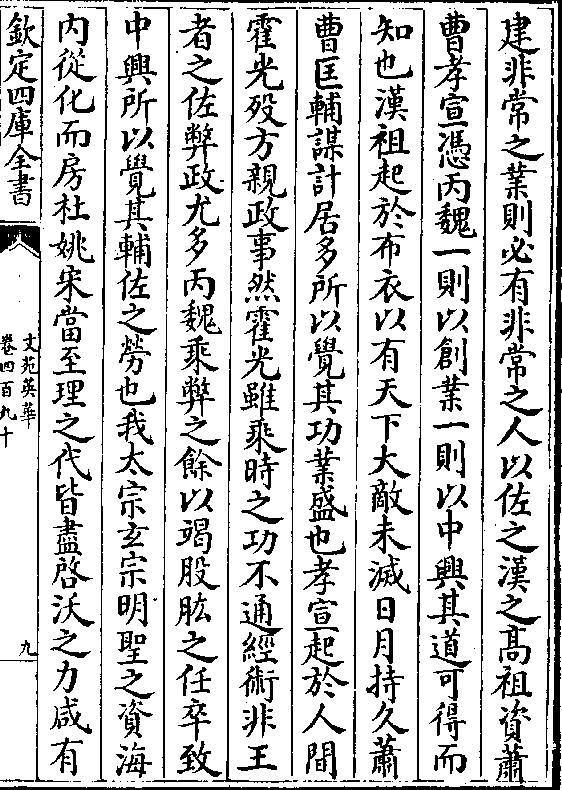 建非常之業則必有非常之人以佐之漢之高祖資蕭
曹孝宣憑丙魏一則以創業一則以中興其道可得而
知也漢祖起於布衣以有天下大敵未滅日月持久蕭
曹匡輔謀計居多所以覺其功業盛也孝宣起於人間
霍光歿方親政事然霍光雖乘時之功不通經術非王
者之佐弊政尤多丙魏乘弊之餘以竭股肱之任卒致
中興所以覺其輔佐之勞也我太宗玄宗明聖之資海
内從化而房杜姚宋當至理之代皆盡啓沃之力咸有
欽定四庫全書
文苑英華
卷四百九十
九